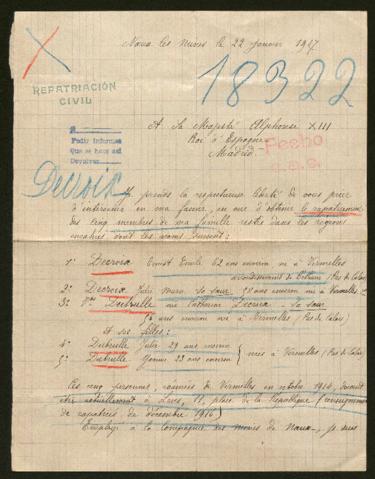 Noeux les Mines le 22 Janvier 1917
18322
REPATRIACIÓN
CIVIL
A Sa Majesté Alphonse XIII
Roi d'Espagne
Madrid
Pedir informes
Que se haga así
Devolver
Fecho
Decroix
Je prends la respectueuse liberté de vous prier
d'intervenir en ma faveur, en vue d'obtenir le rapatriement
des cinq membres de ma famille restés dans les régions
envahies dont les noms suivent :
1° Decroix Emile 62 ans environ né à Vermelles
arrondissement de Béthune (Pas de Calais)
2° Decroix Julie sa sœur 58 ans environ née à Vermelles
3° Dubrulle née Decroix sa sœur
ans environ née à Vermelles (Pas de Calais)
Et ses filles :
4° Dubrulle Julie 29 ans environ
5° Dubrulle 23 ans environ
nées à Vermelles (Pas de Calais)
Ces cinq personnes, de Vermelles en octobre 1914, doivent
être actuellement à Lens, 11, place de la République (renseignements
de rapatriés de décembre 1916)
Employé à la Compagnie des mines de Noeux, je suis